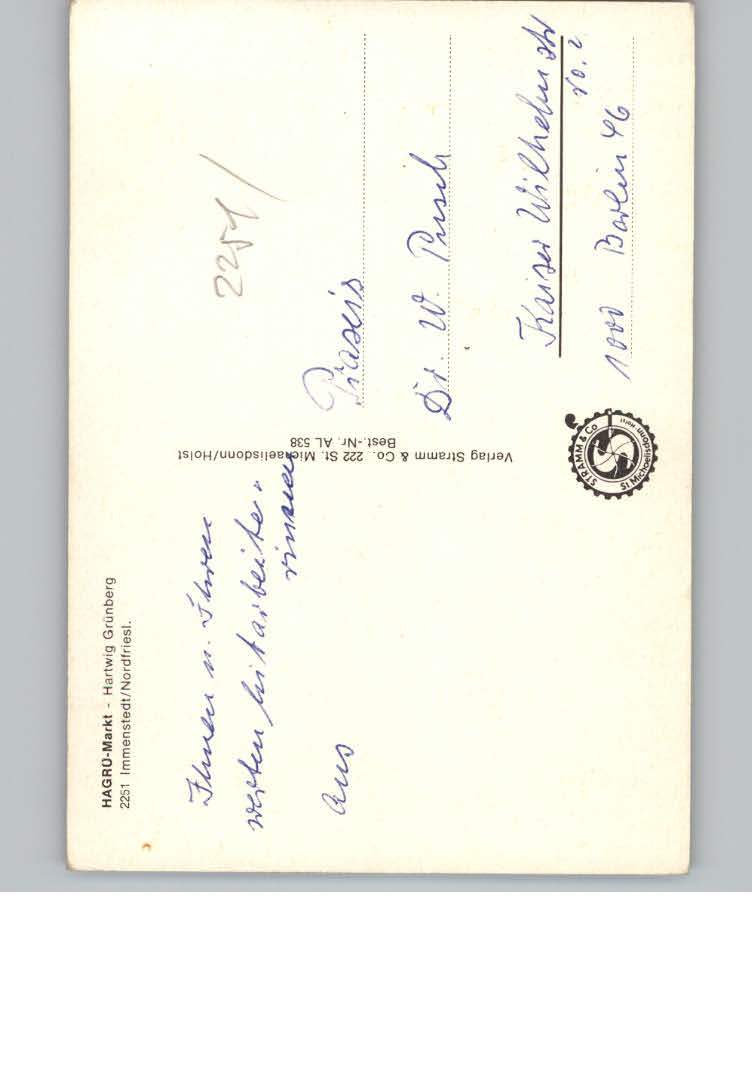 HAGRÜ-Markt - Hartwig Grünberg
2251 Immenstedt/Nordfriesl.
Ihnen u. Ihren
werten Mitarbeite-
rinnen
aus
Verlag Stramm & Co. 222 St. Michaelisdonn/Holst
Best.-Nr. AL 538
2251/
Praxis
Dr. W. Pusch
Kaiser Wilhelm str
10000 Berlin 46
STRAMM & Co
St Michaelisdonn Holst